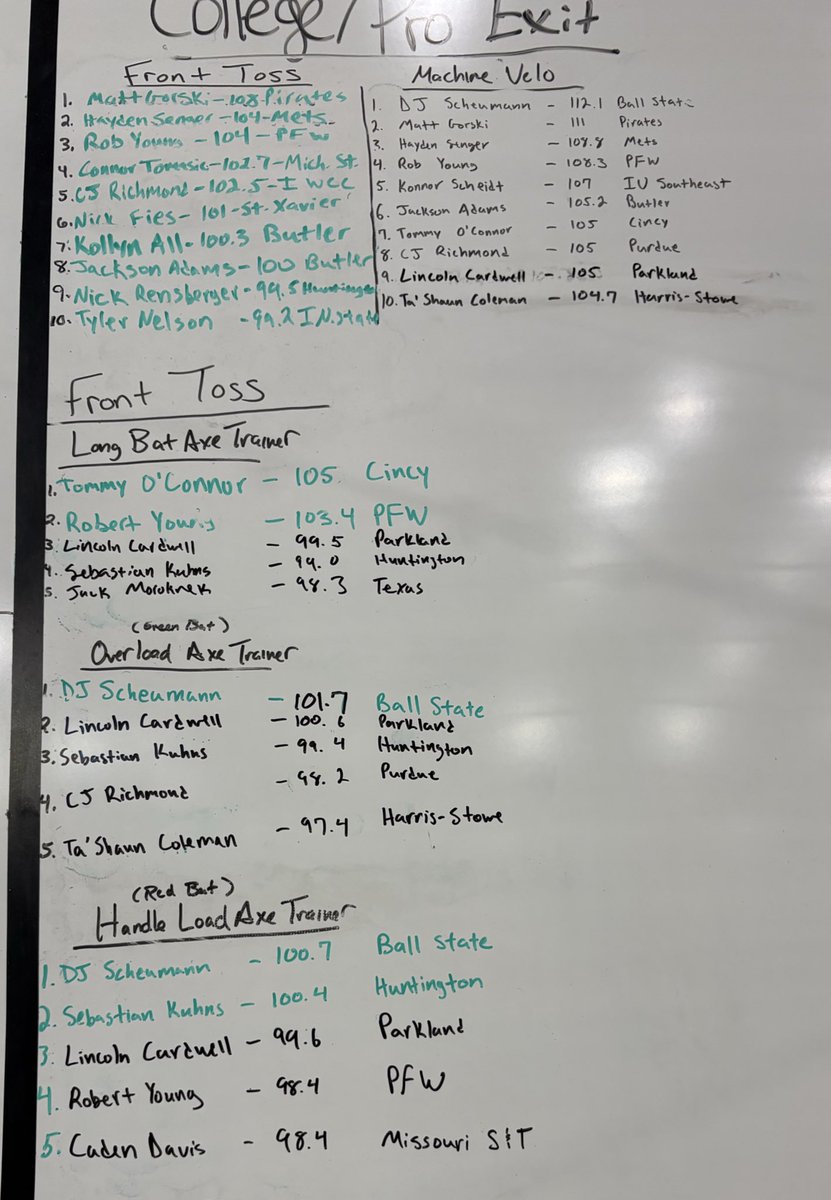 College/Pro Exit
Front Toss
1. Matt Gorski - 108 - Pirates
2. Hayden Senger - 104 - Mets
3. Rob Young - 104 - PFW
4. Connor Tomasic - 102.7 - Mich. St.
5. CJ Richmond - 102.5 - I WCC
6. Nick Fies - 101 - St. Xavier
7. Kollyn All - 100.3 Butler
8. Jackson Adams - 100 Butler
9. Nick Rensberger - 99.5 Huntington
10. Tyler Nelson - 99.2 IN. State
Machine Velo
1. DJ Scheumann - 112.1 Ball State
2. Matt Gorski - 111 Pirates
3. Hayden Senger - 108.8 Mets
4. Rob Young - 108.3 PFW
5. Konnor Scheidt - 107 IU Southeast
6. Jackson Adams - 105.2 Butler
7. Tommy O'Connor - 105 Cincy
8. CJ Richmond - 105 Purdue
9. Lincoln Cardwell - 105 Parkland
10. Ta'Shaun Coleman - 104.7 Harris-Stowe
Front Toss
Long Bat Axe Trainer
1. Tommy O'Connor - 105 Cincy
2. Robert Young - 103.4 PFW
3. Lincoln Cardwell - 99.5 Parkland
4. Sebastian Kuhns - 99.0 Huntington
5. Jack - 98.3 Texas
(Green Bat)
Overload Axe Trainer
1. DJ Scheumann - 101.7 Ball State
2. Lincoln Cardwell - 100.6 Parkland
3. Sebastian Kuhns - 99.4 Huntington
4. CJ Richmond - 98.2 Purdue
5. Ta'Shaun Coleman - 97.4 Harris-Stowe
(Red Bat)
Handle Load Axe Trainer
1. DJ Scheumann - 100.7 Ball State
2. Sebastian Kuhns - 100.4 Huntington
3. Lincoln Cardwell - 99.6 Parkland
4. Robert Young - 98.4 PFW
5. Caden Davis - 98.4 Missouri S&T